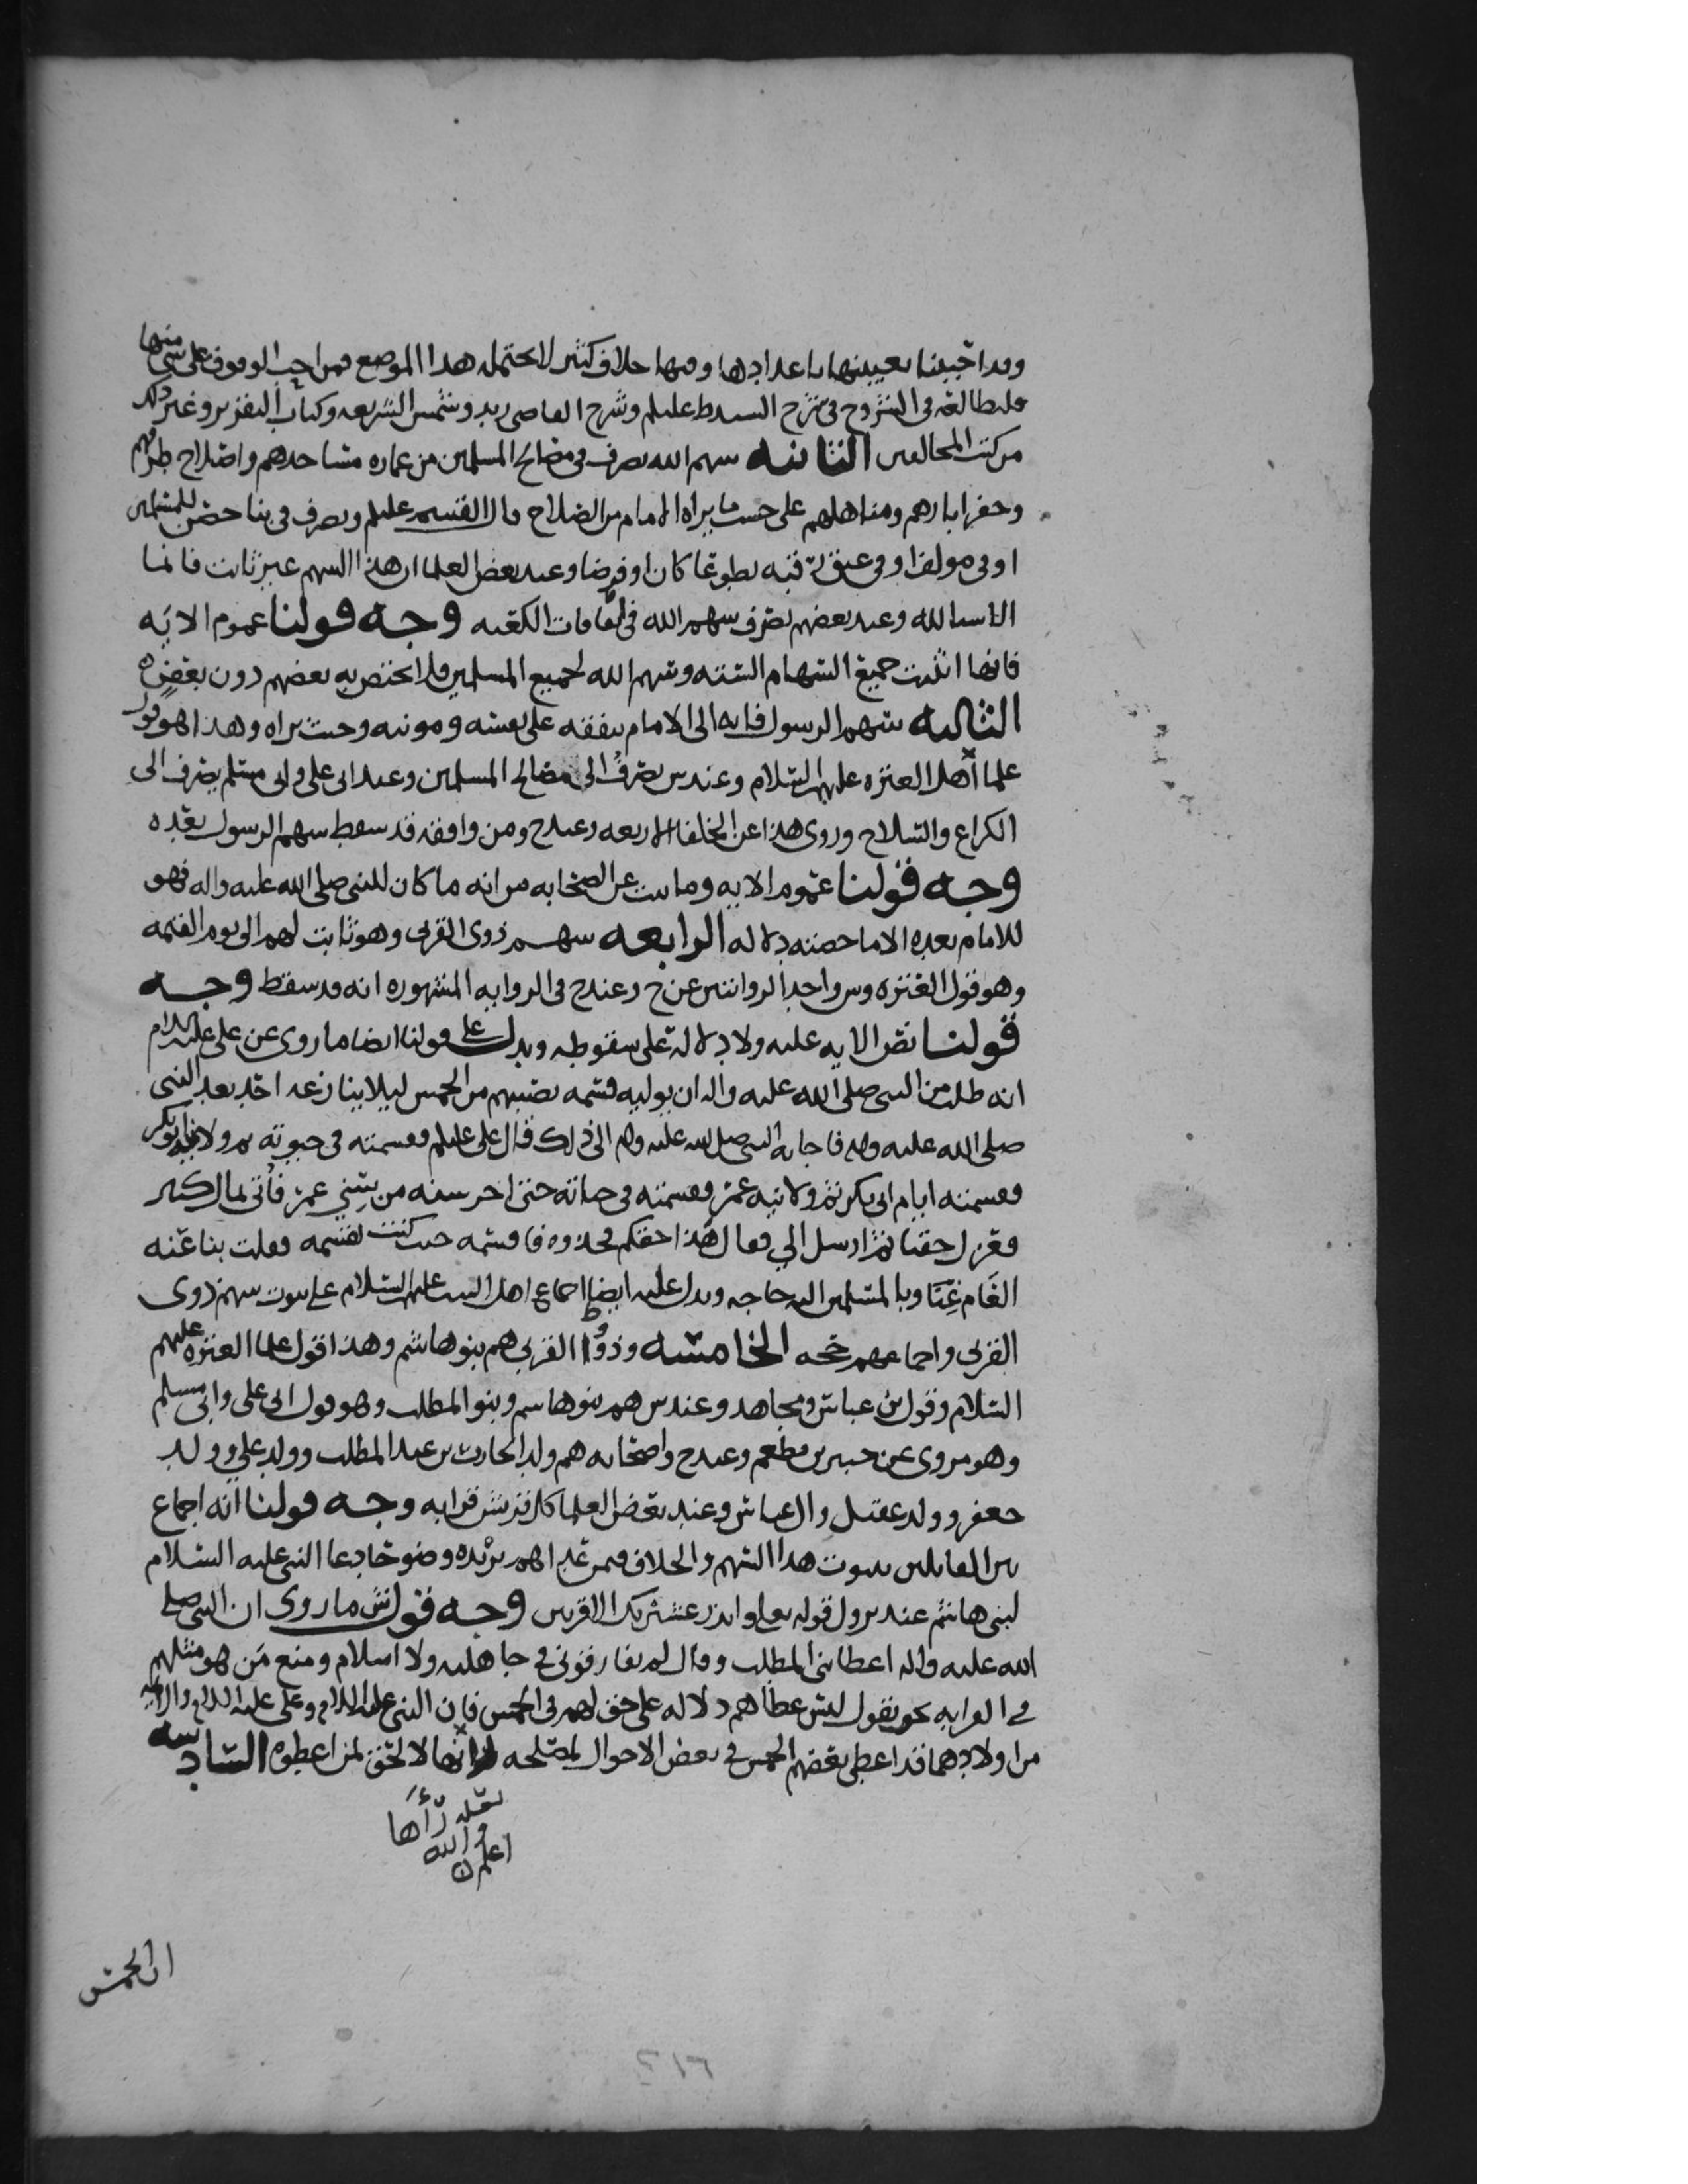 وقد اجبينا تعيينها باعدادها وفيها خلاف كثير لا يحتمله هذا الموضع فمن احب الوقوف على شي منها
فليطالعه في الشروح في شرح السيد ط عليلم وشرح القاضي زيد وشمس الشريعه وكتاب التقرير وغير ذلك
من كتب المخالفين الثانيه سهم الله يصرف في مصالح المسلمين من عماره مساجدهم واصلاح طرقهم
وحفر ابارهم ومناهلهم على حسب ما يراه الامام من الصلاح قال القسم عليلم ويصرف في بنا حصن للمسلمين
او في مولف او في عتق رقبه تطوعا كان او فرضا وعند بعض العلما ان هذا السهم غير ثابت فانما
الاسيا لله وعند بعضهم يصرف سهم الله في الكعبه وجه قولنا عموم الايه
فانها اثبتت جميع السهام السته وسهم الله لجميع المسلمين فلا يختص به بعضهم دون بعض
الثالثه سهم الرسول فانه الى الامام ينفقه على نفسه ومونه وحيث يراه وهذا هو قول
علما اهل العتره عليهم السلام وعند س يصرف الى مصالح المسلمين وعند ابي علي وابي مسلم يصرف الى
الكراع والسلاح وروى هذا عن الخلفا الاربعه وعند ح ومن وافقه قد سقط سهم الرسول بعده
وجه قولنا عموم الايه وما ثبت عن الصحابه من انه ما كان للنبي صلى الله عليه واله فهو
للامام بعده الا ما خصته دلاله الرابعه سهم ذوي القربى وهو ثابت لهم الى يوم القيمه
وهو قول العتره وس واحد الروايتين عن ح وعند ح في الروايه المشهوره انه قد سقط وجه
قولنا نص الايه عليه ولا دلاله على سقوطه ويدل على قولنا ايضا ما روي عن علي عليه السلام
انه طلب من النبي صلى الله عليه واله ان يوليه قسمه نصيبهم من الخمس ليلا ينازعه احد بعد النبي
صلى الله عليه واله فاجابه النبي صلى الله عليه واله الى ذلك قال علي عليلم فقسمته في حيوته ثم ولانيه ابو بكر
فقسمته ايام ابي بكر ثم ولانيه عمر فقسمته في حياته حتى اخر سنه من سني عمر فأتى بمال كثير
فعزل حقنا ثم ارسل الي فقال هذا حقكم فخذوه فاقسمه حيث كنت تقسمه فقلت بنا عنه
العَام غِنَا وبالمسلمين اليه حاجه ويدل عليه ايضا اجماع اهل البيت عليهم السلام على ثبوت سهم ذوى
القربى واجماعهم حجه الخامسه وذووا القربى هم بنو هاشم وهذا قول علما العتره عليهم
السلام وقول بن عباس ومجاهد وعند س هم بنو هاشم وبنو المطلب وهو قول ابي علي وابي مسلم
وهو مروي عن جبير بن مطعم وعند ح واصحابه هم ولد الحارث بن عبد المطلب وولد علي وولد
جعفر وولد عقيل وال عباس وعند بعض العلما كل قريش قرابه وجه قولنا انه اجماع
بين القايلين بثبوت هذا السهم والخلاف فيمن عداهم يزيده وضوحا دعا النبي عليه السلام
لبني هاشم عند نزول قوله تعلى وانذر عشيرتك الاقربين وجه قول ش ما روى ان النبي صلى
الله عليه واله اعطا بني المطلب وقال لم يفارقونى في جاهليه ولا اسلام ومنع مَن هو مثلهم
في القرابه نحو نقول ليس عطاهم دلاله على حق لهم في الخمس فان النبي عليه السلام وعلي عليه السلام والايمه
من اولادهما قد اعطى بعضهم الخمس في بعض الاحوال لمصلحه لا لحق لمن اعطوه السادسه
لعله رَأَها
والله
اعلم
ان الخمس